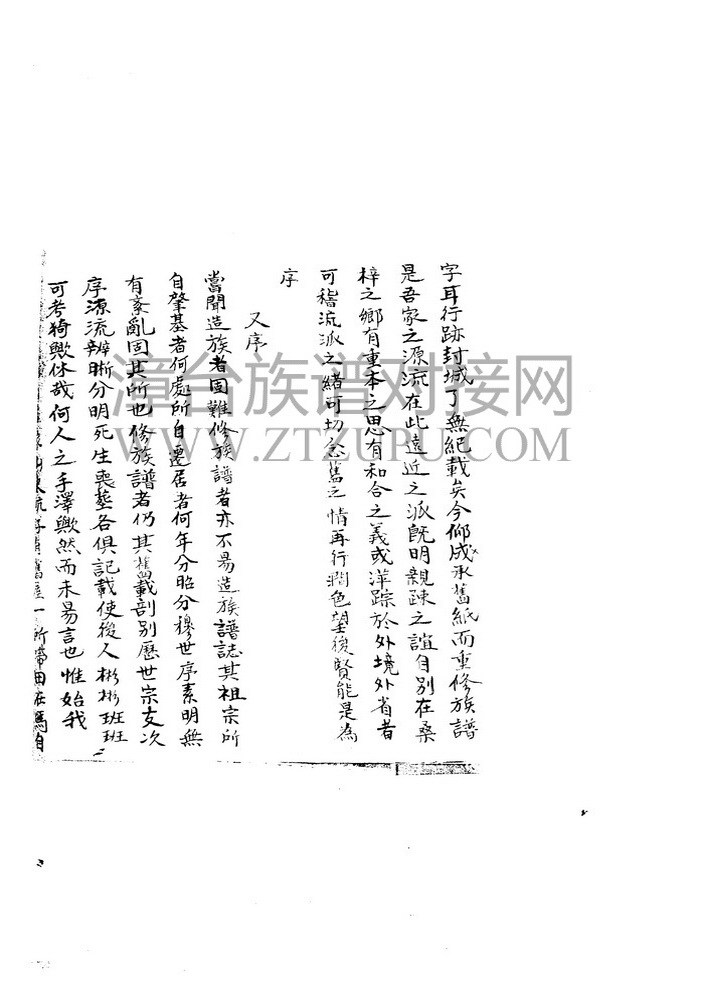 字耳行跡封域了無紀載矣今仰成承舊紙而重修族譜
是吾家之源流在此遠近之派既明親疎之誼自別在桑
梓之鄉有重本之思有和合之義或洋踪於外境外省者
可稽流派之緒可切念舊之情再行潤色望後賢能是為
序
又序
嘗聞造族者固難修族譜者亦不易造族譜誌其祖宗所
自肇基者何處所自遷居者何年分昭分穆世序素明無
有紊亂固其所也修族譜者仍其舊載剖別歷世宗支次
序源流辨晰分明死生喪塟各俱記載使後人彬彬班班
可考猗歟休哉何人之手澤歟然而未易言也惟始我
舊屋一所帶田在馬自
漳台族谱对接网
WWW.ZTZUPU.COM